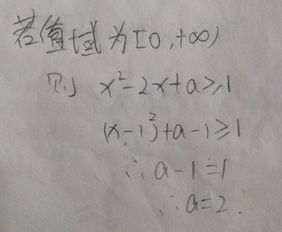 若值域为[0,+∞)
则 x²-2x+a≥1
(x-1)²+a-1≥1
∴a-1=1
∴a=2